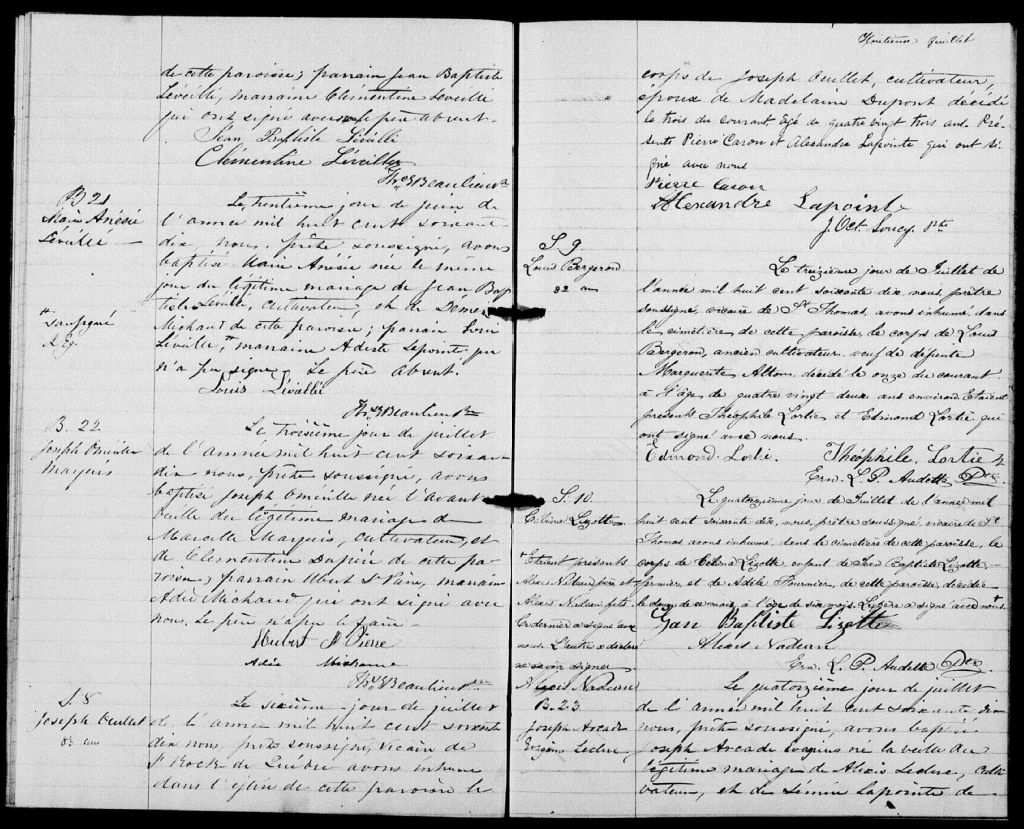 de cette paroisse; parrain Jean Baptiste
Léveillé, marraine Clémentine Léveillé
qui ont signé avec nous le père absent.
Jean Baptiste Léveillé
Clémentine Léveillé
Ths Beaulieu Ptre
B 21
Marie Anésie
Léveillé
Le trentième jour de juin de
l'année mil huit cent soixante
dix, nous, prêtre soussigné, avons
baptisé Marie Anésie née le même
jour du légitime mariage de Jean Bap
tiste Léveillé, cultivateur, et de
Michaud de cette paroisse; parrain Louis
Léveillé, marraine Adèle Lapointe qui
n'a pu signer. Le père absent.
+ soussigné
Louis Léveillé
Ths Beaulieu Ptre
B. 22
Joseph Oméville
Marquis
Le troisième jour de juillet
de l'année mil huit cent soixante
dix nous, prêtre soussigné, avons
baptisé Joseph Oméville né l'avant
veille du légitime mariage de
Marcelle Marquis, cultivateur, et
de Clémentine de cette pa
roisse; parrain Hubert St Pierre, marraine
Adée Michaud qui ont signé avec
nous. Le père n'a pu le faire
Hubert St Pierre
Adée Michaud
Ths Beaulieu Ptre
S. 8
Joseph Ouellet
83 ans
Le sixième jour de juillet
de l'année mil huit cent soixante
dix nous, prêtre soussigné, vicaire de
St Rock de Québec avons inhumé
dans l'église de cette paroisse le
juillet
corps de Joseph Ouellet, cultivateur,
époux de Madelaine Dupont décédé
le trois du courant, âgé de quatre vingt trois ans. Pré-
sents Pierre Caron et Alexandre Lapointe qui ont si-
gné avec nous
Pierre Caron
Alexandre Lapoint
J. Oct. Soucy Ptre
S. 9
Louis Bergeron
82 ans
Le treizième jour de Juillet de
l'année mil huit cent soixante dix, nous prêtre
soussigné, vicaire de St Thomas, avons inhumé dans
le cimetière de cette paroisse, le corps de Louis
Bergeron, ancien cultivateur, veuf de défunte
Marguerite décédé le onze du courant
à l'âge de quatre vingt deux ans environ. Etaient
présents Théophile Lortie et Edmond Lortie qui
ont signé avec nous.
Edmond Lortie. Théophile Lortie
Ern. L. P. Audette Ptre
S. 10
Célina Lizotte
Le quatorzième jour de Juillet de l'année mil
huit cent soixante dix, nous, prêtre soussigné, vicaire de St
Thomas avons inhumé, dans le cimetière de cette paroisse, le
corps de Célina Lizotte, enfant de Jean Baptiste Lizotte,
fermier, et de Adèle Fournier, de cette paroisse, décédée
le douze de ce mois, à l'âge de six mois. Le père a signé avec nous. +
+ Etaient présents
Alexis Nadeau père et
Alexis Nadeau fils.
Ce dernier a signé avec
nous. L'autre a déclaré
ne savoir signer.
Alexis Nadeau
Jean Baptiste Lizotte
Alexis Nadeau
Ern. L. P. Audette Ptre
B. 23
Joseph Arcade
Leclerc
Le quatorzième jour de juillet
de l'année mil huit cent soixante dix
nous, prêtre soussigné, avons baptisé
Joseph Arcade né la veille du
légitime mariage de Alexis Leclerc, culti
vateur, et de Lapointe de